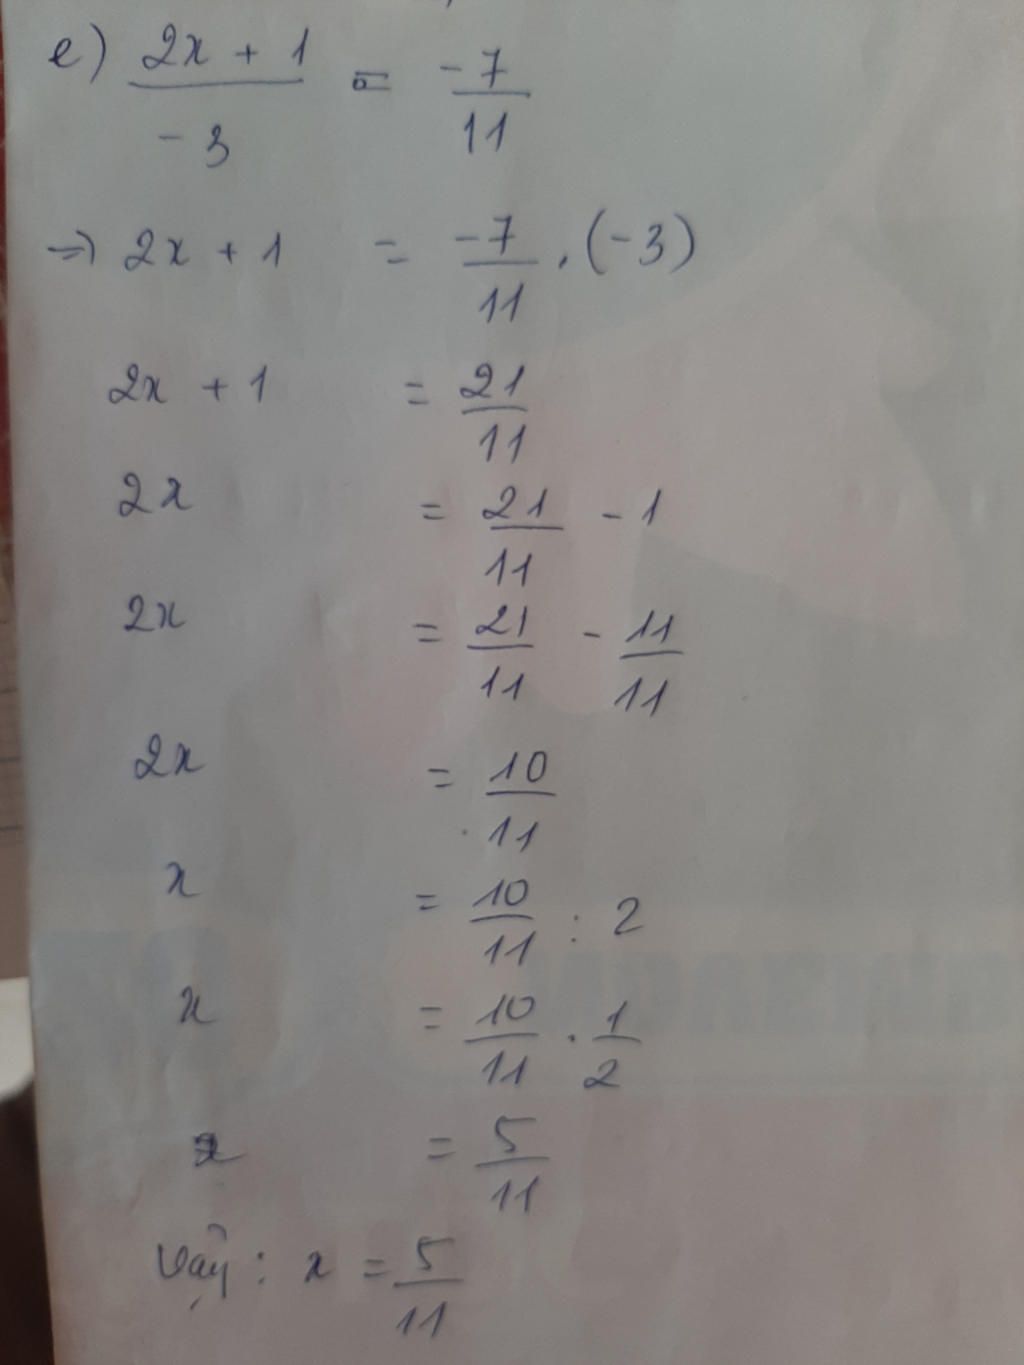 e) \frac{2x + 1}{-3} = \frac{-7}{11}
=> 2x + 1 = \frac{-7}{11} . (-3)
2x + 1 = \frac{21}{11}
2x = \frac{21}{11} - 1
2x = \frac{21}{11} - \frac{11}{11}
2x = \frac{10}{11}
x = \frac{10}{11} : 2
x = \frac{10}{11} . \frac{1}{2}
x = \frac{5}{11}
Vậy : x = \frac{5}{11}